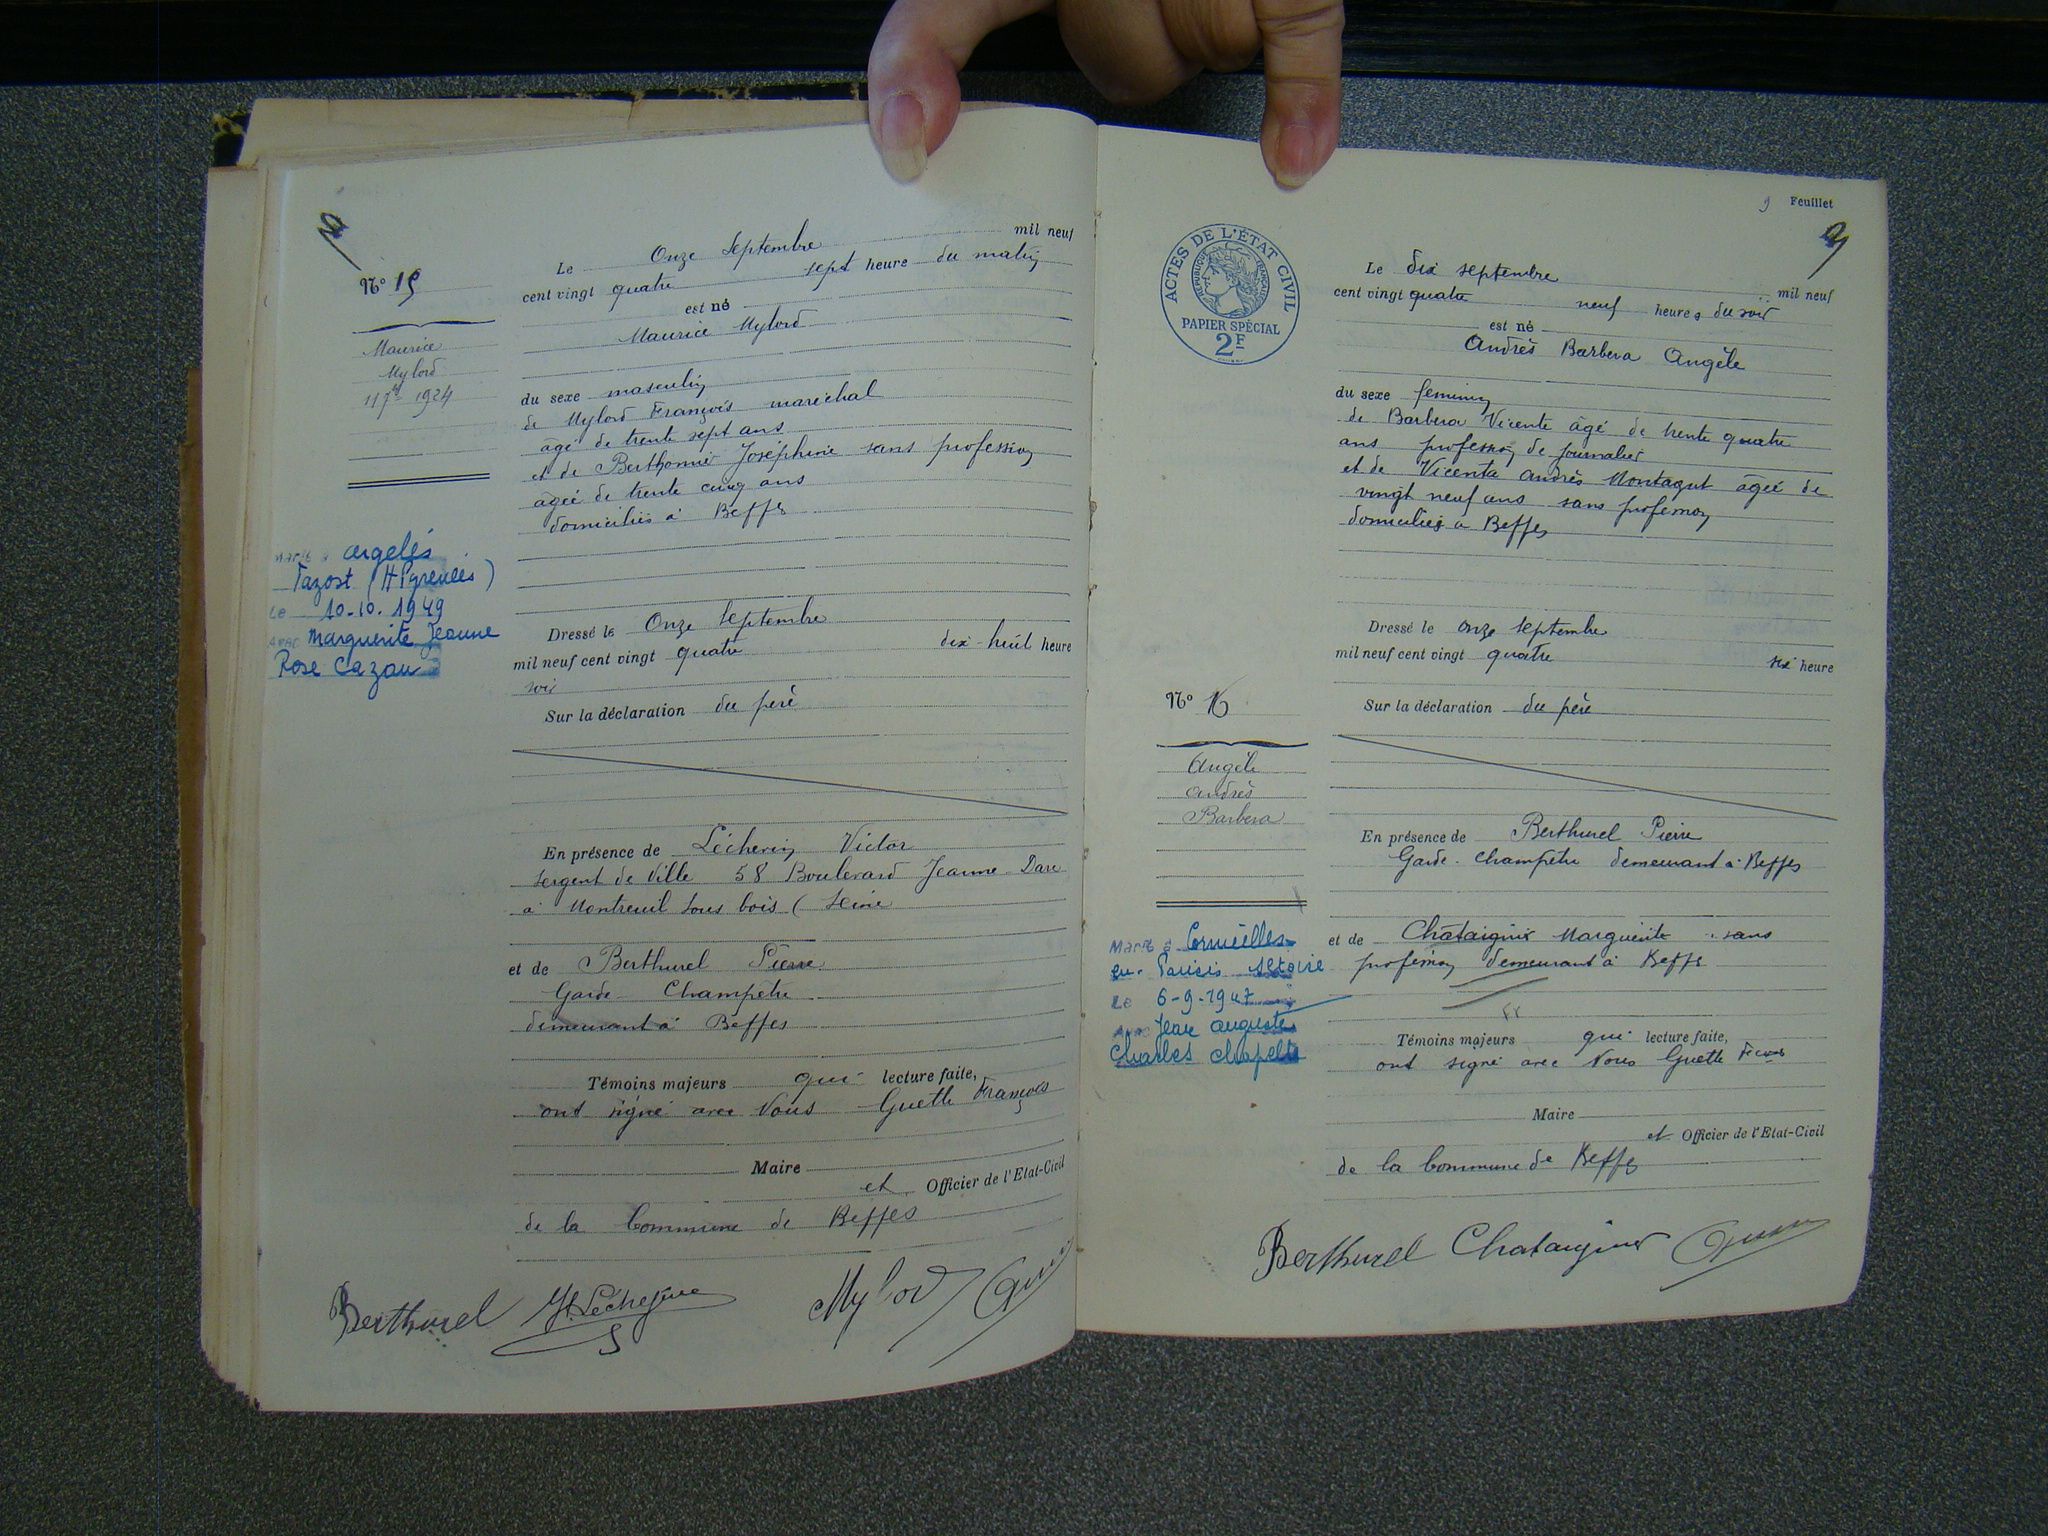 Nº 15
Maurice
Mylord
11 7bre 1924
Marié à argelès
Gazost (H Pyrénées)
Le 10-10-1949
avec Marguerite Jeanne
Rose Cazau
Le Onze Septembre mil neuf
cent vingt quatre sept heure du matin
est né
Maurice Mylord
du sexe masculin
de Mylord François maréchal
âgé de trente sept ans
et de Berthomier Joséphine sans profession
âgée de trente cinq ans
domiciliés à Beffes
Dressé le Onze Septembre
mil neuf cent vingt quatre dix-huit heure
soir
Sur la déclaration du père
En présence de Victor
sergent de Ville 58 Boulevard Jeanne Darc
à Montreuil sous bois ( Seine
et de Berthurel Pierre
Garde Champêtre
demeurant à Beffes
Témoins majeurs qui lecture faite,
ont signé avec Nous Guette François
Maire
et Officier de l'Etat-Civil
de la Commune de Beffes
Berthurel Mylord
9 Feuillet
ACTES DE L'ÉTAT CIVIL
RÉPUBLIQUE FRANÇAISE
PAPIER SPÉCIAL
2F
Nº 16
Angèle
Andrès
Barbera
Marié à Cormeilles
en Parisis Set Oise
Le 6-9-1947
avec Jean Auguste
Charles
Le dix septembre mil neuf
cent vingt quatre neuf heures du soir
est né
Andrès Barbera Angèle
du sexe feminin
de Barbera Vicente âgé de trente quatre
ans profession de journalier
et de Vicenta Andrès Montagut âgée de
vingt neuf ans sans profession
domiciliés à Beffes
Dressé le onze septembre
mil neuf cent vingt quatre six heure
Sur la déclaration du père
En présence de Berthurel Pierre
Garde-champêtre demeurant à Beffes
et de Chataignier Marguerite sans
profession demeurant à Beffes
Témoins majeurs qui lecture faite,
ont signé avec Nous Guette
Maire
et Officier de l'Etat-Civil
de la Commune de Beffes
Berthurel Chataignier